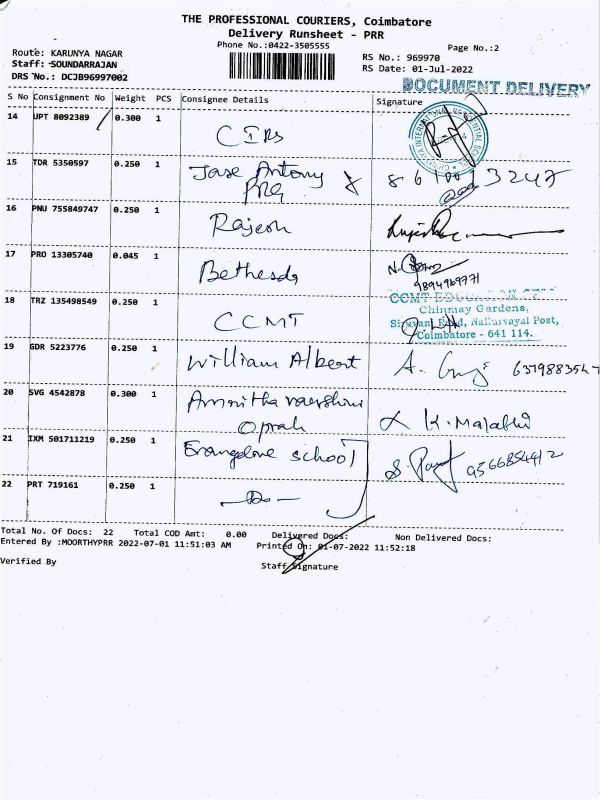 THE PROFESSIONAL COURIERS, Coimbatore
Delivery Runsheet - PRR
Phone No.:0422-3505555
Page No.:2
Route: KARUNYA NAGAR
Staff: SOUNDARRAJAN
DRS No.: DCJB96997002
RS No.: 969970
RS Date: 01-Jul-2022
DOCUMENT DELIVERY
S No Consignment No Weight PCS Consignee Details Signature
14 UPT 8092389 0.300 1
CIRS
15 TDR 5350597 0.250 1
Jase Antony
PRG
16 PNU 755849747 0.250 1
Rajesh
17 PRO 13305740 0.045 1
Bethesda
9894989771
18 TRZ 135498549 0.250 1
CCMT
CCMT EDUCATION
Chinmay Gardens,
Siruvani Road, Nallurvayal Post,
Coimbatore - 641 114.
19 GDR 5223776 0.250 1
William Albert
20 SVG 4542878 0.300 1
Amritha varshini
Oprah
K. Malathi
21 IXM 501711219 0.250 1
Evangeline school
9566854412
22 PRT 719161 0.250 1
-Do-
Total No. Of Docs: 22 Total COD Amt: 0.00 Delivered Docs: Non Delivered Docs:
Entered By :MOORTHYPRR 2022-07-01 11:51:03 AM Printed On: 01-07-2022 11:52:18
Verified By
Staff Signature